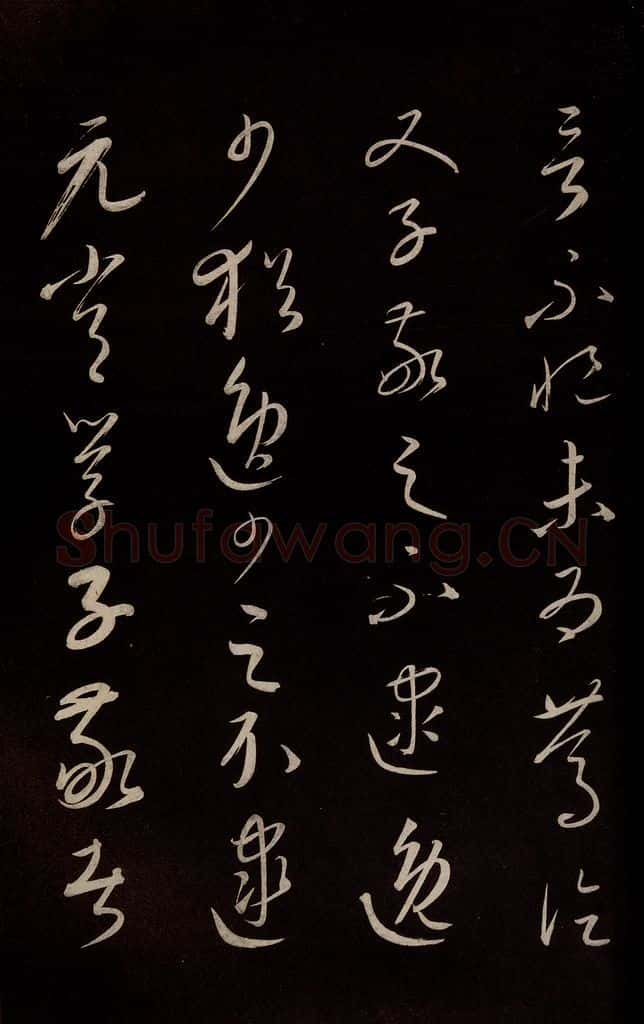 言不悒未為篤論
又子敬之不逮逸
少猶逸少之不逮
元常學子敬者
Shufawang.CN